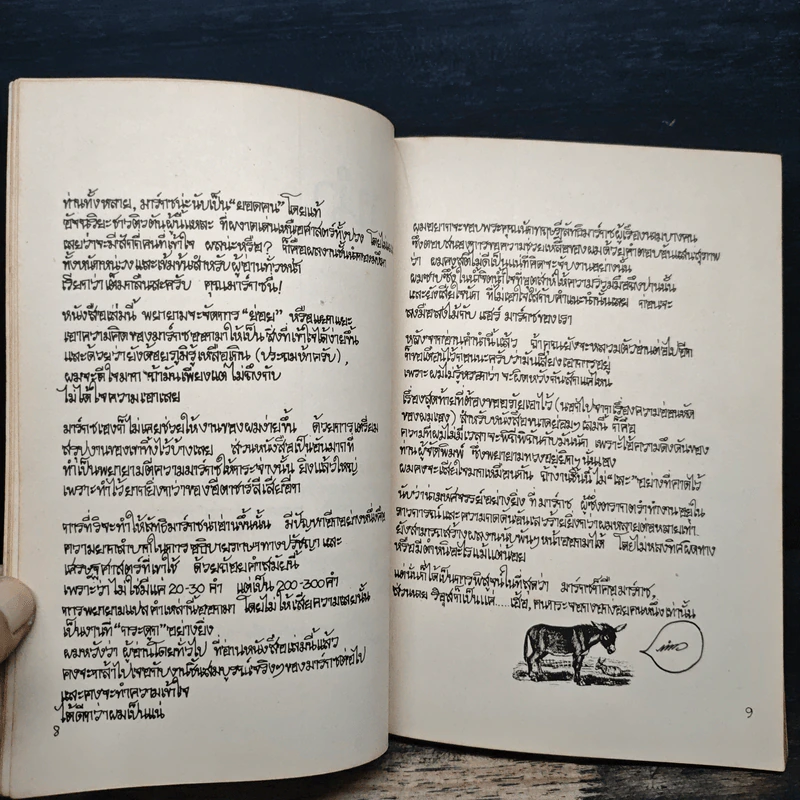 ท่านทั้งหลาย, มาร์กซน่ะนับเป็น "ยอดคน" โดยแท้
อัจฉริยะชาวติวตันผู้นี้แหละ ที่ผงาดเด่นเหนือศาสตร์ทั้งปวง โดยไม่
เลยว่าจะมีสักกี่คนที่เข้าใจ ผลน่ะหรือ? ก็คือผลงานชั้นนำ
ทั้งหนักหน่วงและเข้มข้นสำหรับผู้อ่านทั่วหล้า
เรียกว่าเต็มกลืนละครับ คุณมาร์กซนี่!
หนังสือเล่มนี้ พยายามจะจัดการ "ย่อย" หรือแยกแยะ
เอาความคิดของมาร์กซออกมาให้เป็นสิ่งที่เข้าใจได้ง่ายขึ้น
และด้วยว่ายังด้อยภูมิรู้เหลือเกิน (ประถมห้าครับ),
ผมจะดีใจมาก ถ้ามันเพียงแต่ไม่ถึงกับ
ไม่ได้ใจความเอาเลย
มาร์กซเองก็ไม่เคยช่วยให้งานของผมง่ายขึ้น ด้วยการเตรียม
สรุปงานของเขาทิ้งไว้บ้างเลย ส่วนหนังสือเป็นอันมากที่
ทำเป็นพยายามตีความมาร์กซให้กระจ่างนั้น ยิ่งแล้วใหญ่
เพราะทำไว้ยากยิ่งกว่าของอีตาชาร์ลีเสียอีก
การที่ริจะทำให้ลัทธิมาร์กซน่าอ่านขึ้นนั้น มีปัญหาอีกอย่างหนึ่งคือ
ความยากลำบากในการอธิบายภาษาทางปรัชญา และ
เศรษฐศาสตร์ที่เขาใช้ ด้วยถ้อยคำสมัยนี้
เพราะว่า ไม่ใช่มีแค่ 20-30 คำ แต่เป็น 200-300 คำ
การพยายามแปลคำเหล่านี้ออกมา โดยไม่ให้เสียความเลยนั้น
เป็นงานที่ "กระดูก" อย่างยิ่ง
ผมหวังว่า ผู้อ่านโดยทั่วไป ที่อ่านหนังสือเล่มนี้แล้ว
คงจะกล้าไปเจอกับงานชิ้นสมบูรณ์จริงๆของมาร์กซต่อไป
และคงจะทำความเข้าใจ
ได้ดีกว่าผมเป็นแน่
8
ผมอยากจะขอบพระคุณนักทฤษฎีลัทธิมาร์กซผู้เรืองนามบางคน
ซึ่งตอบสนองการขอความช่วยเหลือของผมด้วยคำตอบอันแสนสุภาพ
ว่า ผมคงสติไม่ดีเป็นแน่ที่คิดจะจับงานอย่างนั้น
ผมซาบซึ้งในน้ำจิตน้ำใจที่อุตส่าห์ให้ความร่วมมือถึงปานนั้น
และยังเสียใจนัก ที่ไม่เอาใจใส่กับคำแนะนำนั้นเลย ก่อนจะ
ลงมือลงไม้กับ แฮร์ มาร์กซของเรา
หลังจากอ่านคำนำนี้แล้ว ถ้าคุณยังจะหลวมตัวอ่านต่อไปอีก
ก็ขอเตือนไว้ก่อนนะครับว่ามันเสี่ยงเอาการอยู่
เพราะผมไม่รู้หรอกว่า จะผิดหวังกันสักแค่ไหน
เรื่องสุดท้ายที่ต้องขออภัยเอาไว้ (นอกไปจากเรื่องความอ่อนหัด
ของผมเอง) สำหรับหนังสือขนาดย่อมๆเล่มนี้ ก็คือ
ความที่ผมไม่มีเวลาจะพิถีพิถันกับมันนัก เพราะไอ้ความดึงดันของ
ท่านผู้จัดพิมพ์ ซึ่งพยายามทวงอยู่ยิกๆนั่นเอง
ผมคงจะเสียใจมากเหมือนกัน ถ้างานชิ้นนี้ไม่ "เละ" อย่างที่คาดไว้
นับว่าน่ามหัศจรรย์อย่างยิ่ง ที่ มาร์กซ ผู้ซึ่งตรากตรำทำงานอยู่ใน
สถานการณ์และความกดดันอันเลวร้ายยิ่งกว่าผมหลายต่อหลายเท่า
ยังสามารถสร้างผลงานนับพันๆหน้าออกมาได้ โดยไม่หลงทิศผิดทาง
หรือมีตำหนิอะไรแม้แต่น้อย
แต่นั่นก็ได้เป็นการพิสูจน์ในที่สุดว่า มาร์กซก็คือมาร์กซ,
ส่วนเลย ริอุสก็เป็นแค่.....เอ้อ, คนกระจอกงอกง่อยคนหนึ่งเท่านั้น
9